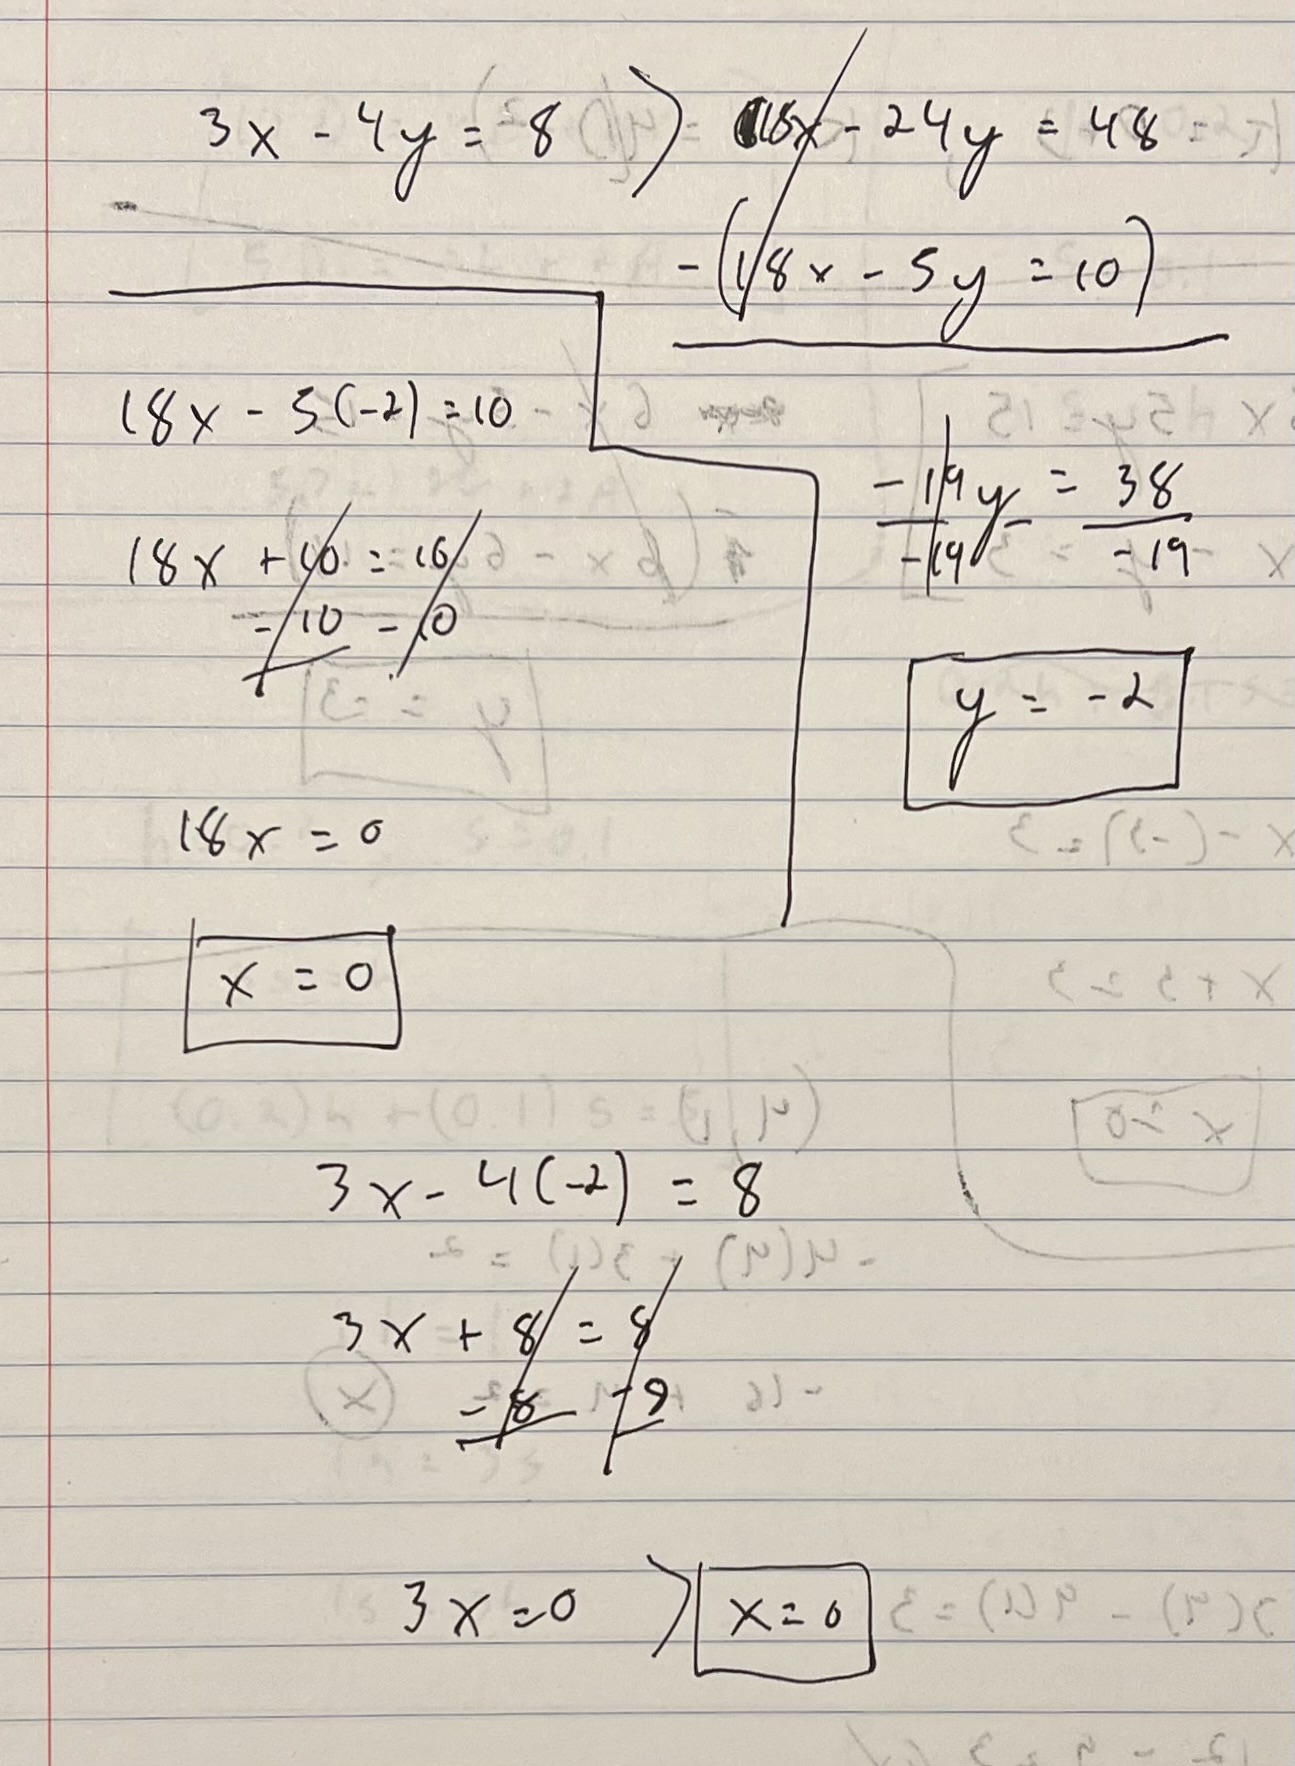 3x - 4y = 8 ) 18x - 24y = 48
- (18x - 5y = 10)
18x - 5(-2) = 10
-19y = 38
-19 -19
y = -2
18x + 10 = 10
- 10 - 10
18x = 0
x = 0
3x - 4(-2) = 8
3x + 8 = 8
- 8 - 8
3x = 0 ) x = 0